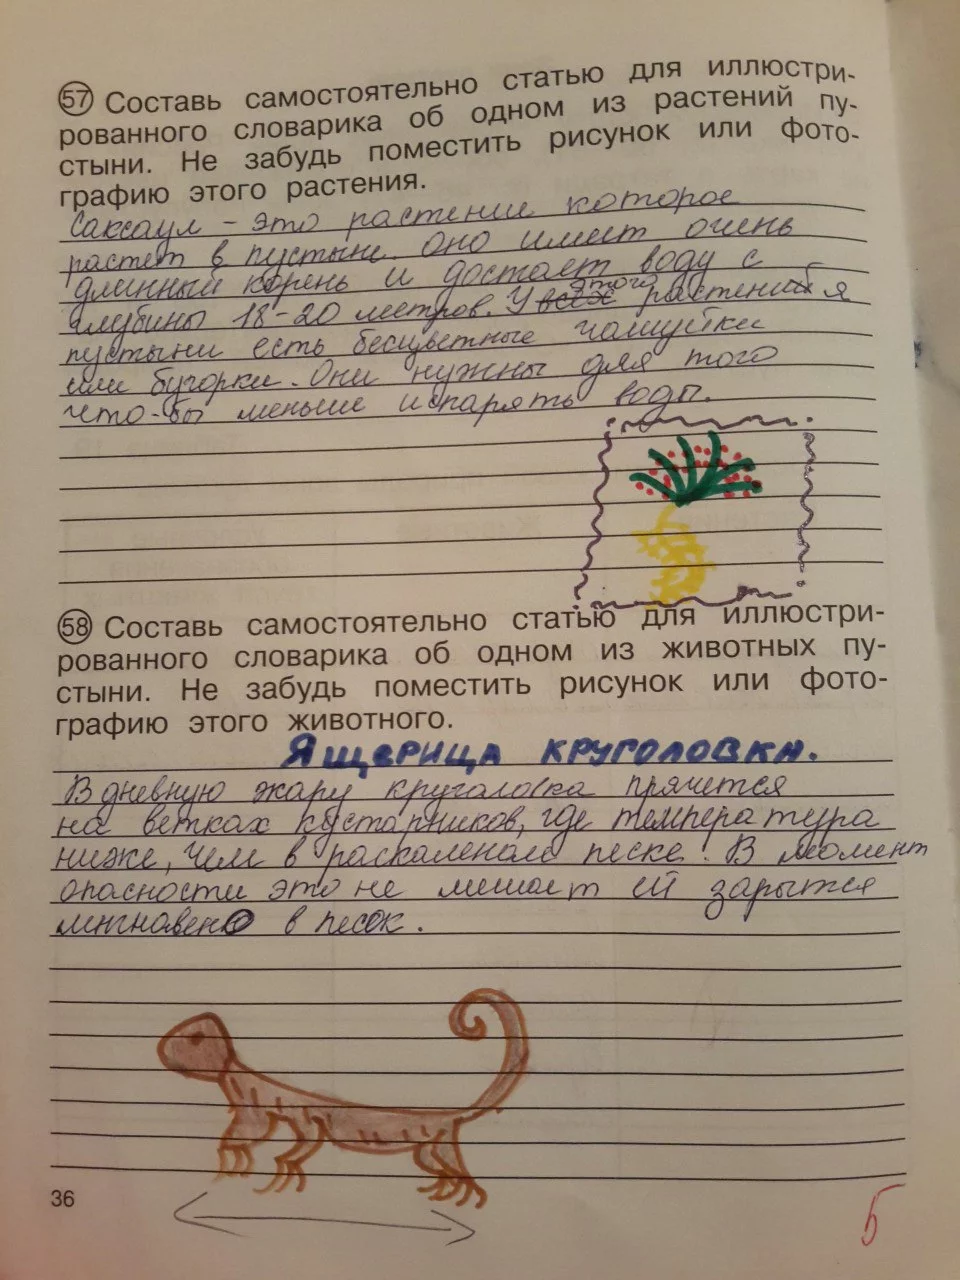 57 Составь самостоятельно статью для иллюстри-
рованного словарика об одном из растений пу-
стыни. Не забудь поместить рисунок или фото-
графию этого растения.
Саксаул – это растение которое
растет в пустыне. оно имеет очень
длинный корень и достает воду с
глубины 18-20 метров. У этого растения
пустыни есть бесцветные чашуйки
или бугорки. Они нужны для того
что-бы меньше испарять воды.
58 Составь самостоятельно статью для иллюстри-
рованного словарика об одном из животных пу-
стыни. Не забудь поместить рисунок или фото-
графию этого животного.
ЯЩЕРИЦА КРУГОЛОВКА.
В дневную жару круголовка прячется
на ветках кустарников, где температура
ниже, чем в раскаленом песке. В момент
опасности это не мешает ей зарытся
мгновено в песок.
36
5